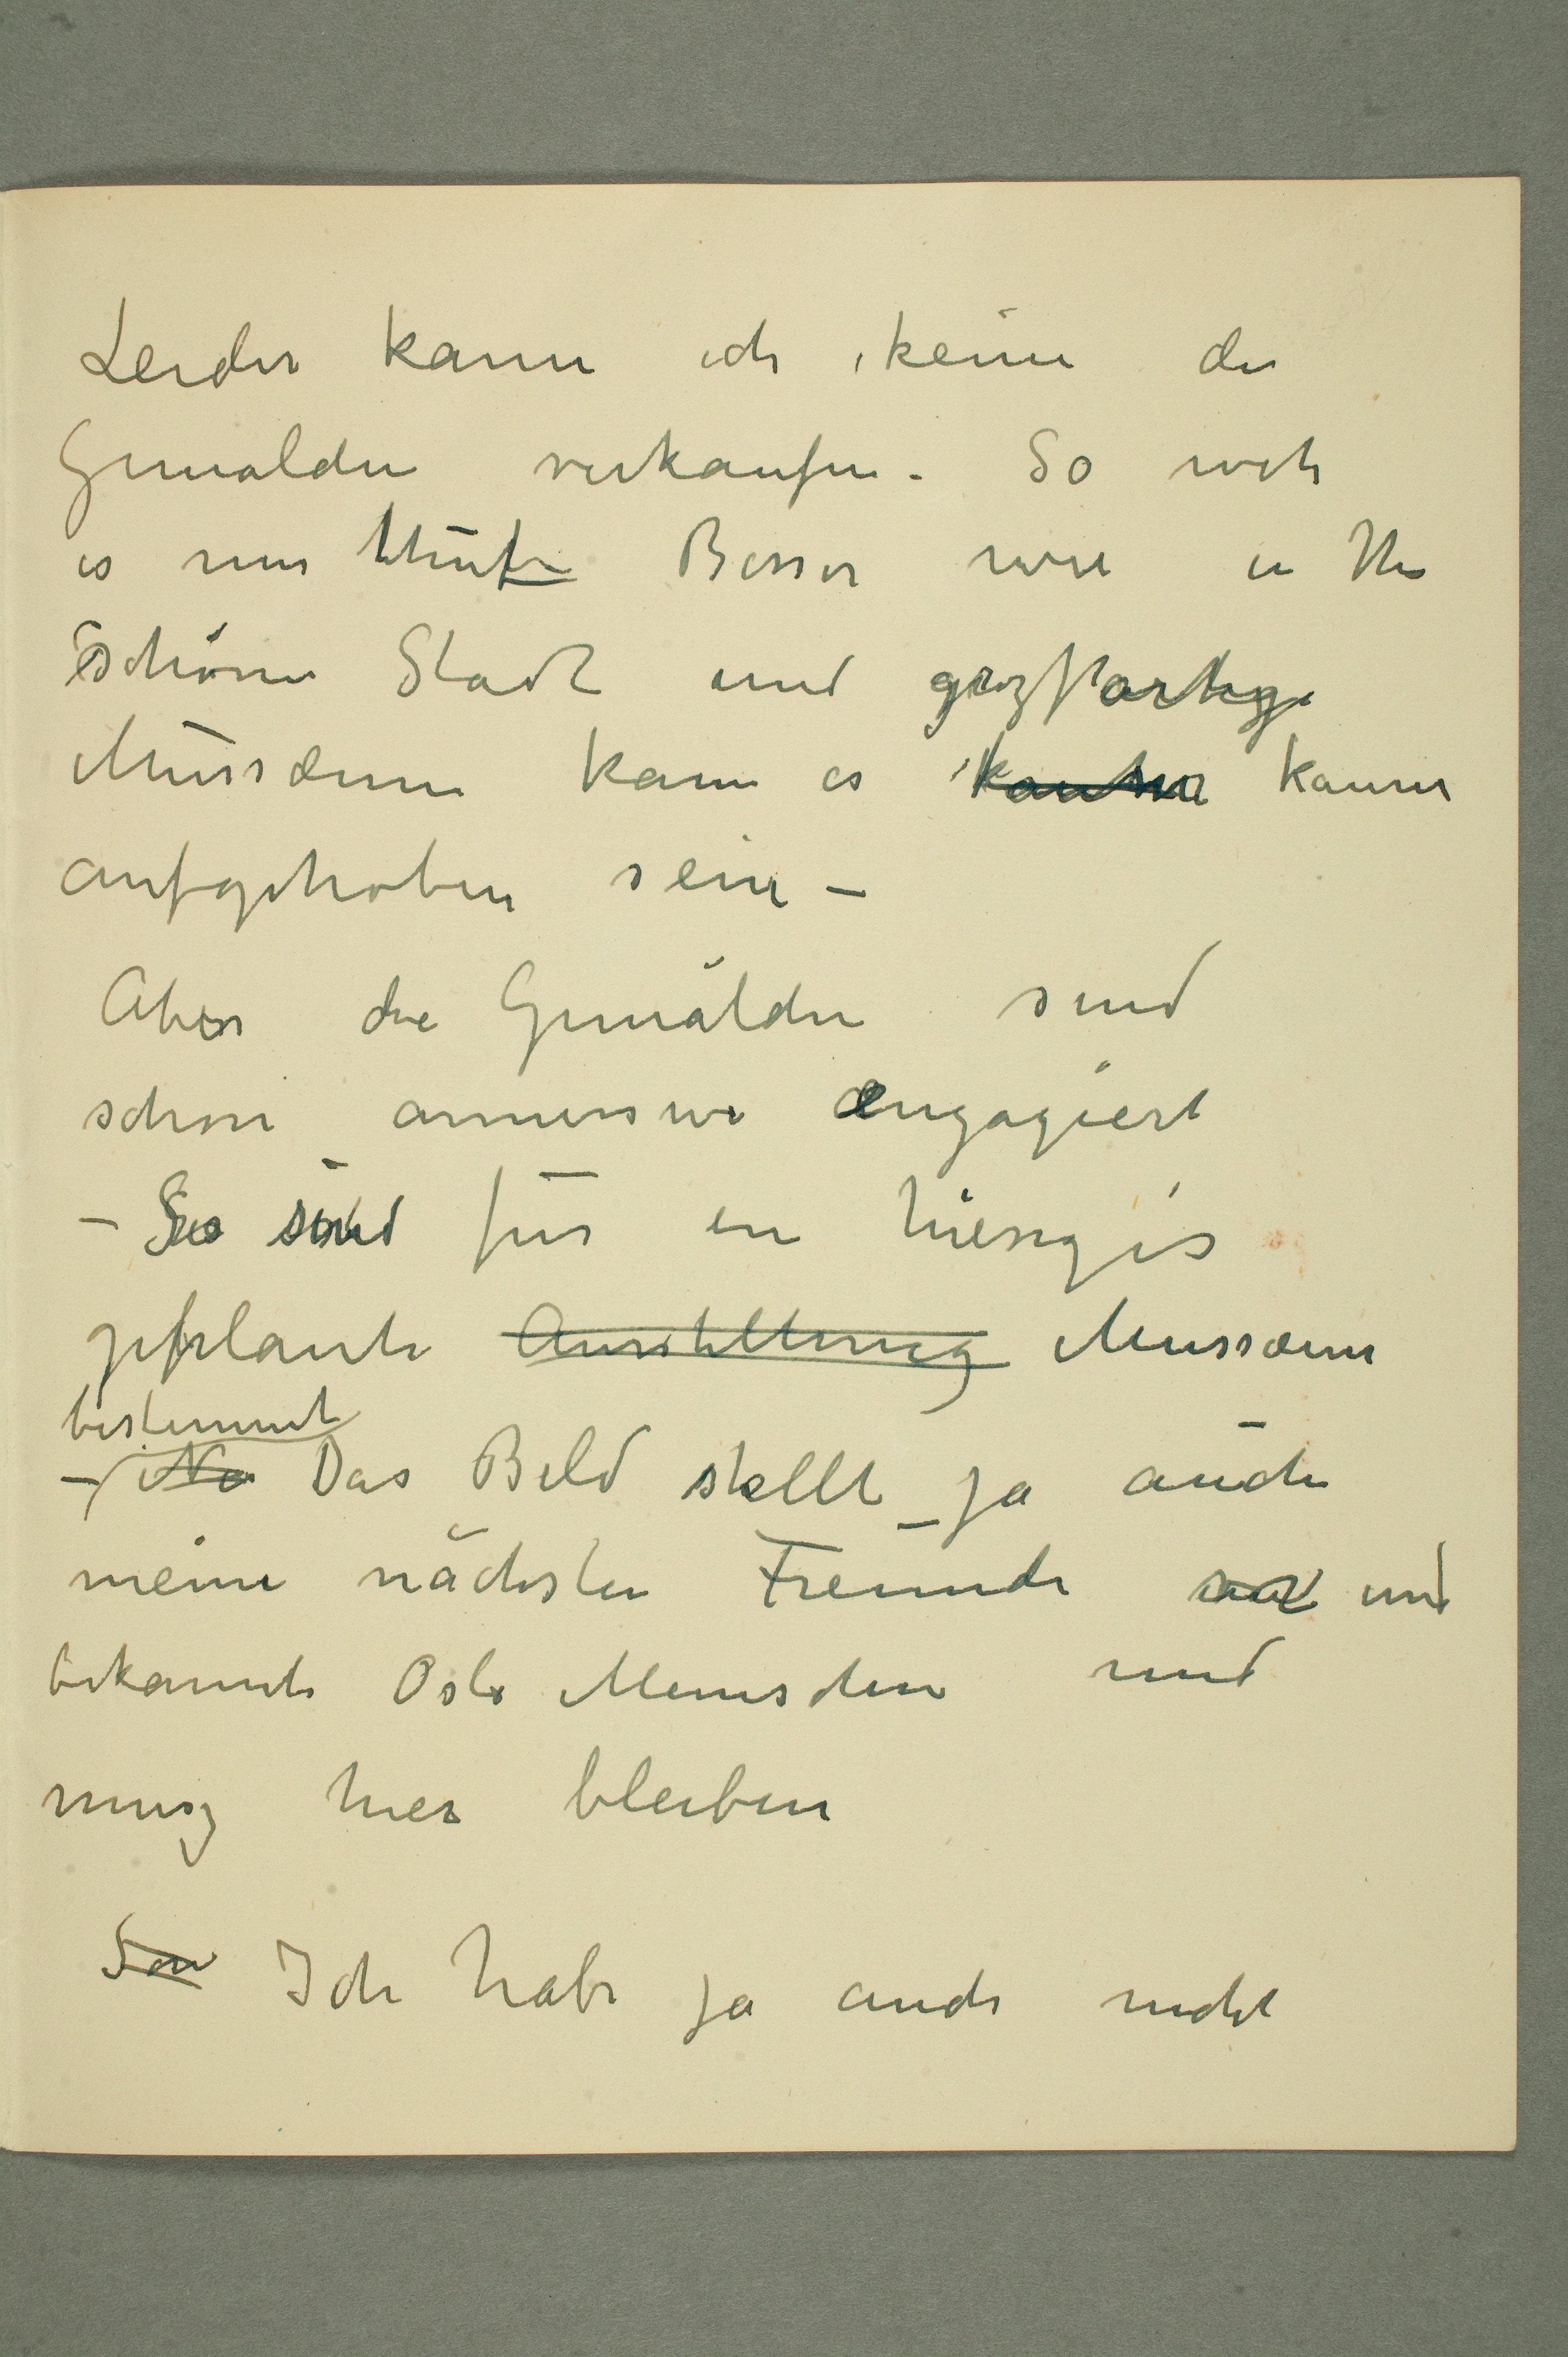 Leider kann ich keine der
Gemälden verkaufen. So weh
es mir thut – Besser wie in Ihr
schöne Stadt und grozartige
Mussæum kann es kaum kaum
aufgehoben sein –
Aber die Gemälden sind
schon annerswo engagiert
– Sie sind für ein hiesiges
geplante Ausstellung Mussæum
bestimmt
– Das Bild stellt ja auch
meine nächsten Freunde und
bekannte Oslo Menschen und
musz hier bleiben
Ich habe ja auch nicht